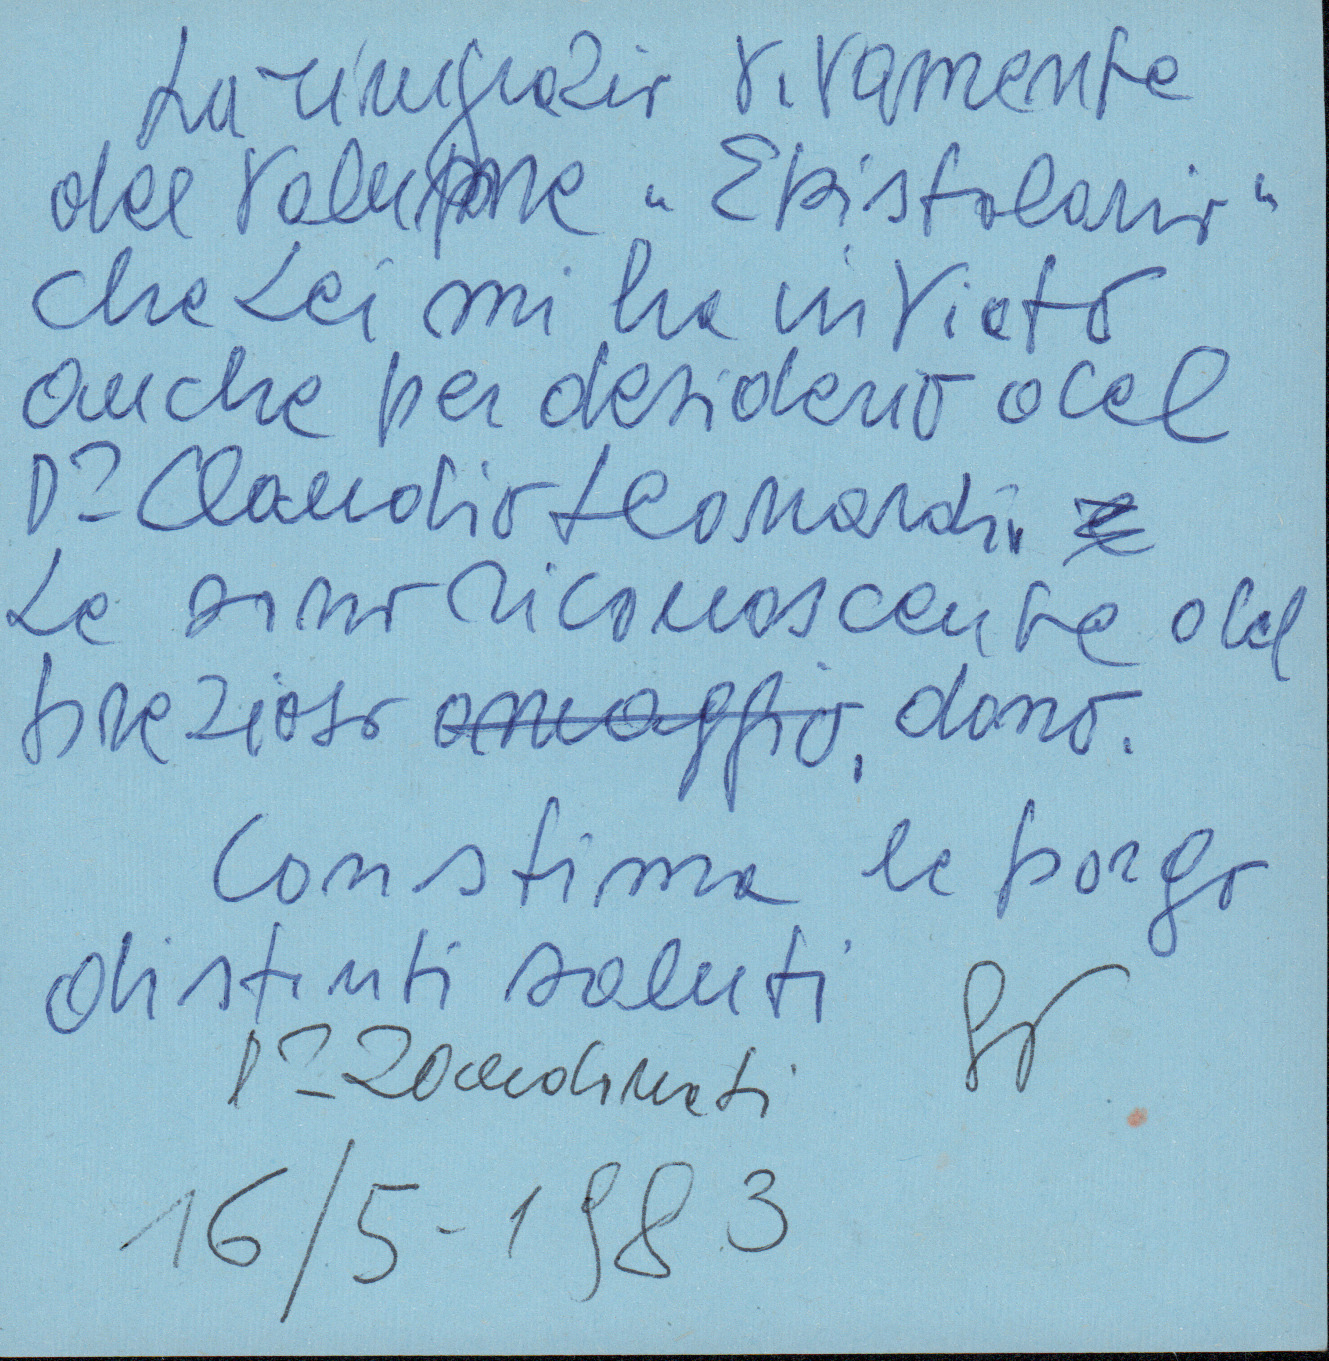 La ringrazio vivamente
del volume "Epistolario"
che Lei mi ha inviato
anche per desiderio del
Dr Claudio Leonardi.
Le sono riconoscente del
prezioso omaggio, dono.
Con stima le porgo
distinti saluti
Dr
16/5-1983